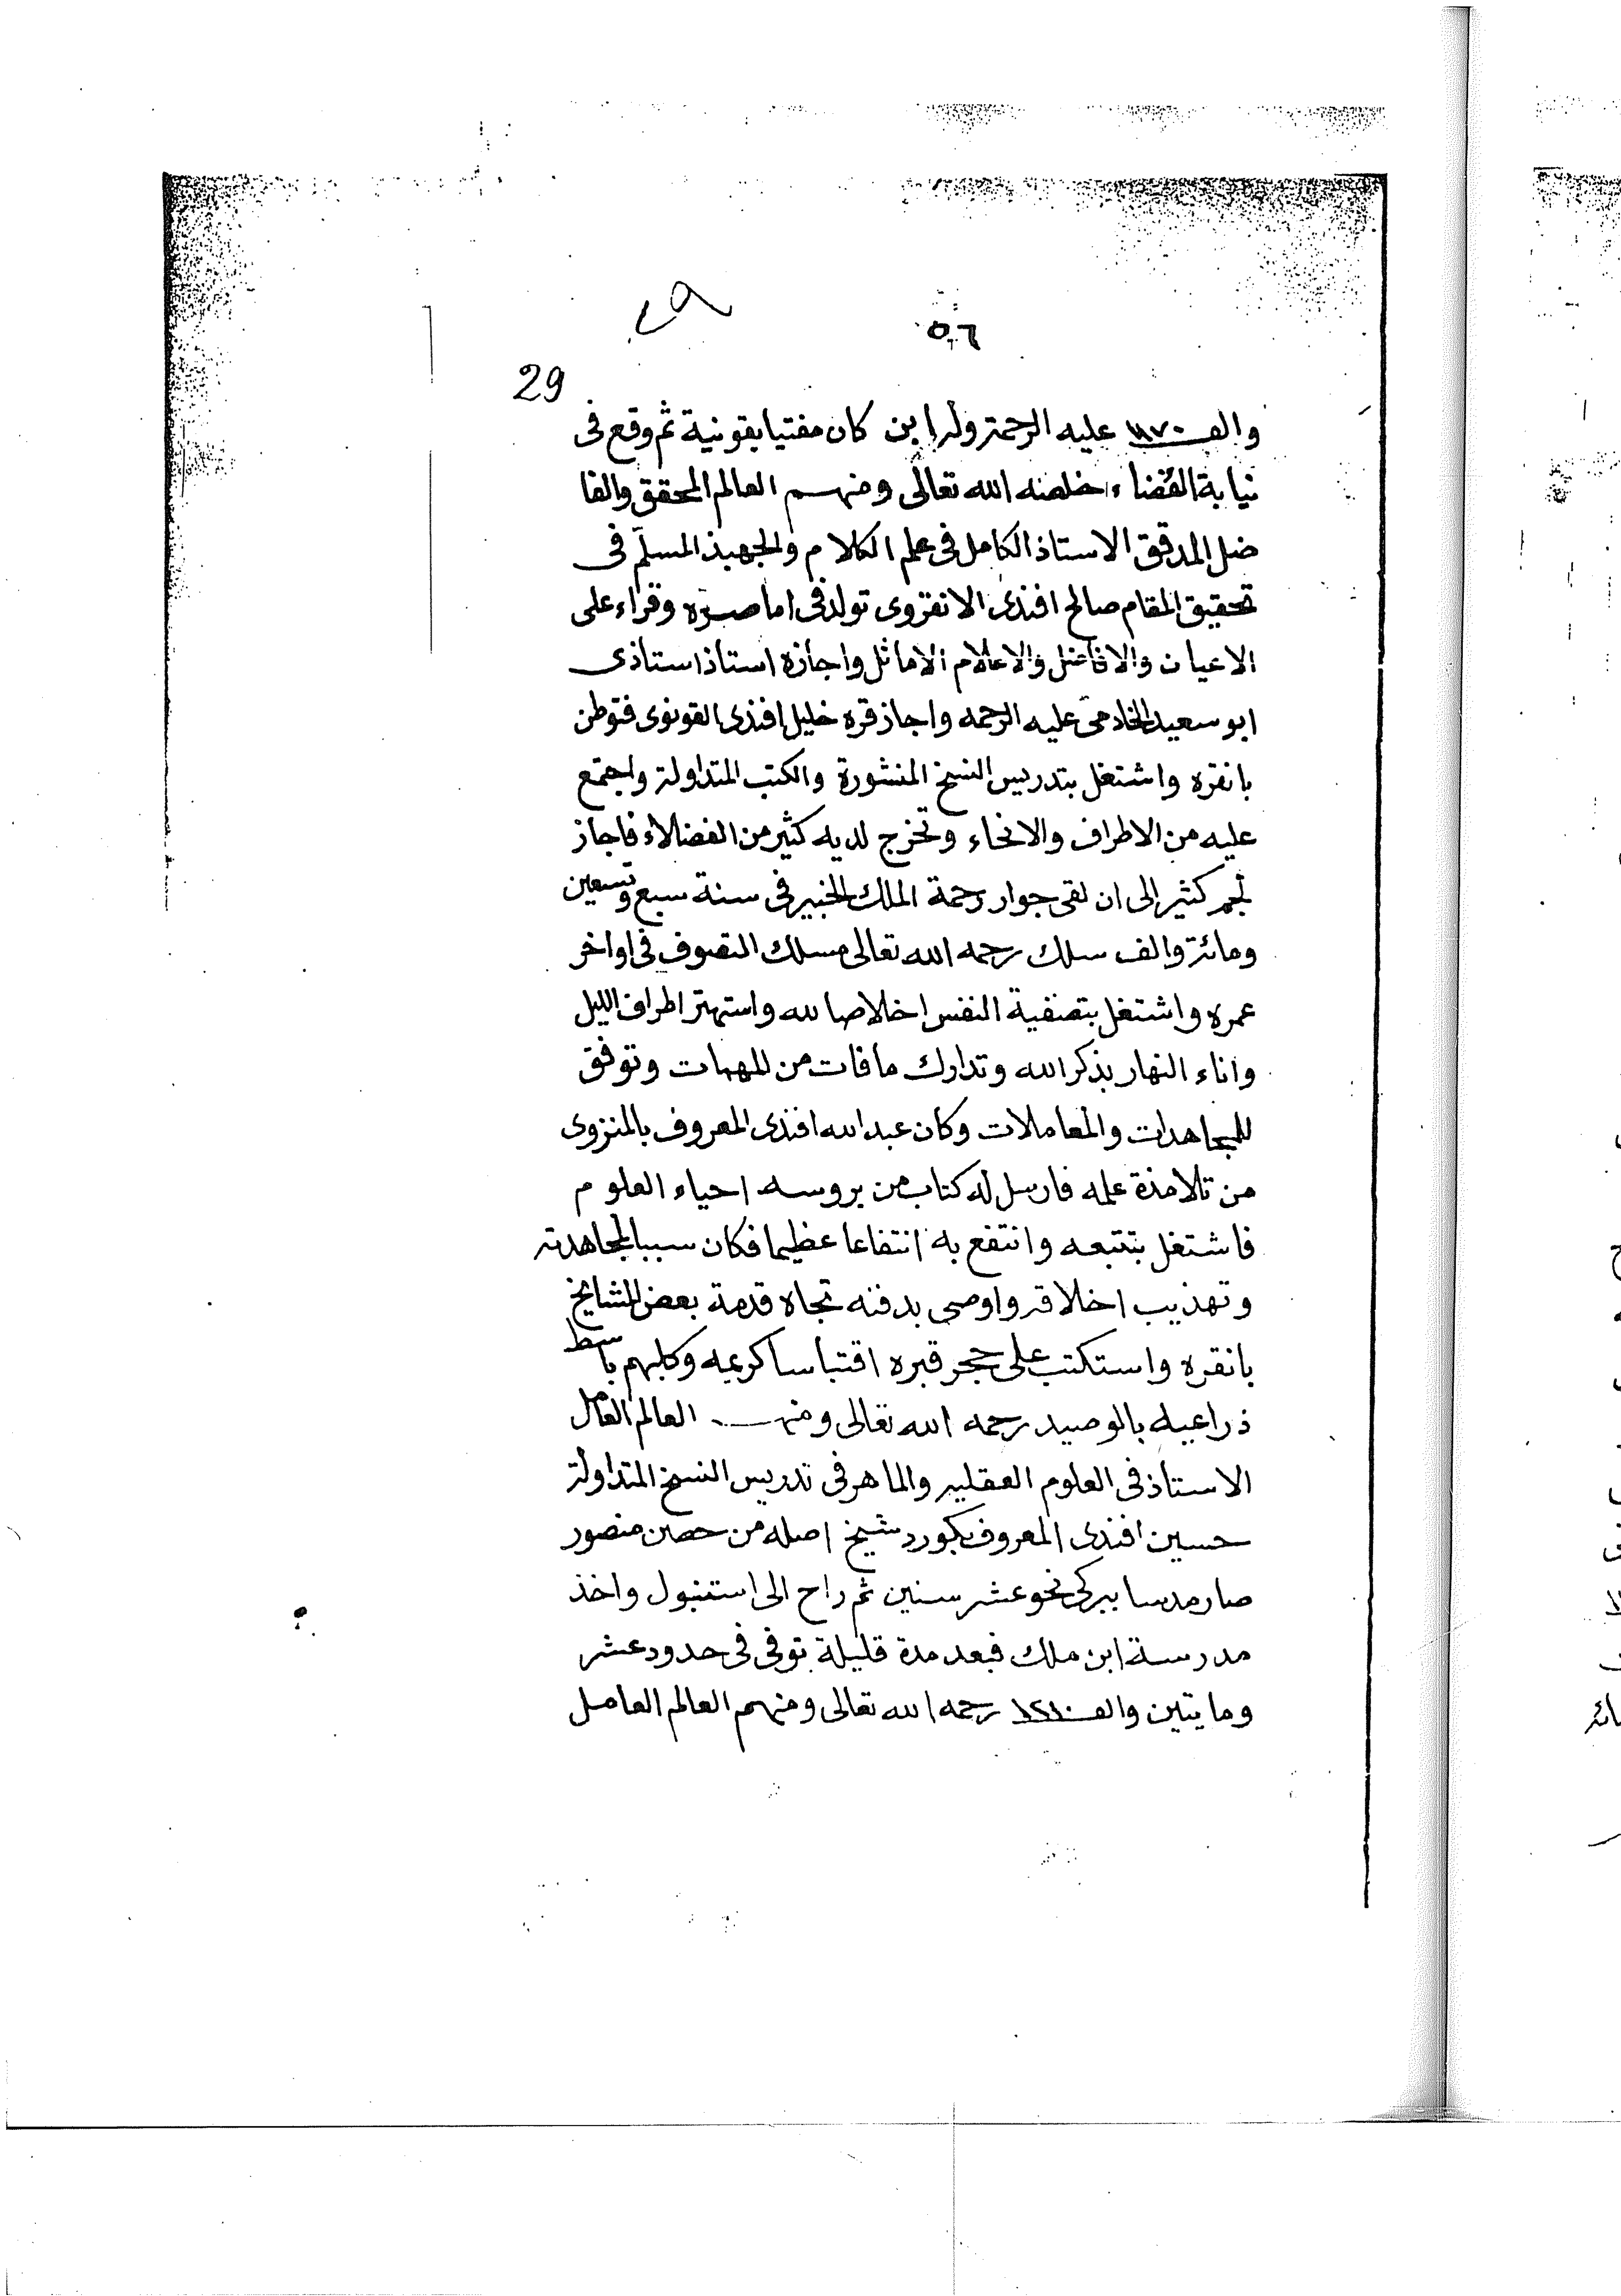 ٢٩
٥٦
29
والف ١١٧٠ عليه الرحمة وله ابن كان مفتيا بقونية ثم وقع فى
نيابة القضاء خلصه الله تعالى ومنهم العالم المحقق والفا
ضل المدقق الاستاذ الكامل فى علم الكلام والجهبذ المسلم فى
تحقيق المقام صالح افندى الانقروى تولد فى اماصره وقراء على
الاعيان والافاضل والاعلام الاماثل واجازه استاذ استاذى
ابو سعيد الخادمى عليه الرحمه واجاز قره خليل افندى القونوى فتوطن
بانقره واشتغل بتدريس النسخ المنشورة والكتب المتداولة واجتمع
عليه من الاطراف والانحاء وتخرج لديه كثير من الفضلاء فاجاز
لجم كثير الى ان لقى جوار رحمة الملك الخبير فى سنة سبع وتسعين
ومائة والف سلك رحمه الله تعالى مسلك التصوف فى اواخر
عمره واشتغل بتصفية النفس اخلاصا لله واستهتر اطراف الليل
واناء النهار بذكر الله وتدارك ما فات من المهمات وتوفق
للمجاهدات والمعاملات وكان عبد الله افندى المعروف بالمنزوى
من تلامذة علمه فارسل له كتاب من بروسه احياء العلوم
فاشتغل بتتبعه وانتفع به انتفاعا عظيما فكان سببا لمجاهدته
وتهذيب اخلاقه واوصى بدفنه تجاه قدمة بعض المشايخ
بانقره واستكتب على حجر قبره اقتباسا كريمه وكلبهم باسط
ذراعيه بالوصيد رحمه الله تعالى ومنهم العالم الفاضل
الاستاذ فى العلوم العقليه والماهر فى تدريس النسخ المتداولة
حسين افندى المعروف بكورد شيخ اصله من حصن منصور
صار مدرسا ببركى نحو عشر سنين ثم راح الى استنبول واخذ
مدرسة ابن ملك فبعد مدة قليلة توفى فى حدود عشر
ومايتين والف ١٢١٠ رحمه الله تعالى ومنهم العالم العامل